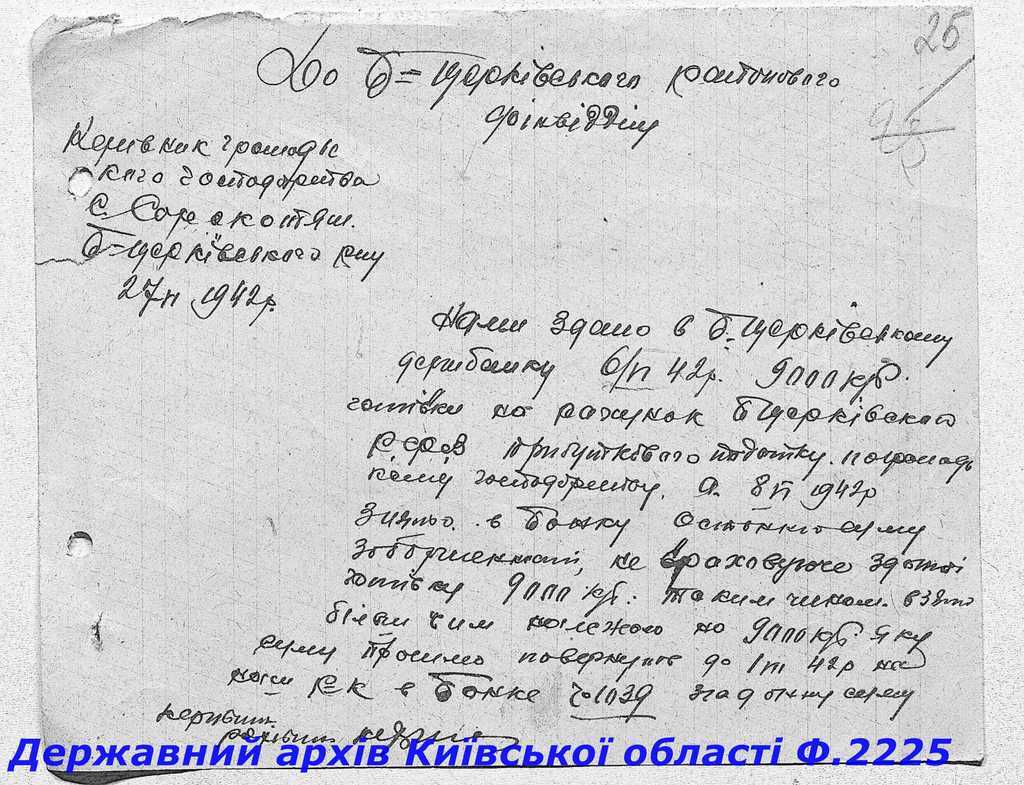 25
До Б=Церківського районового
фінвідділу
Керівник громадсь
кого господарства
с.
Б=Церківського р-ну
27/ІІ 1942р.
Нами здано в Б.Церківському
держбанку 6/ІІ 42р. 9000 крб.
готівки на рахунок БЦерківского
прибуткового податку по громадсь
кому господарству. А 8/ІІ 1942р
знято в банку останню суму
заборженості, не враховуючи здані
готівку 9000 крб. таким чином взято
більш чим належало на 9000 крб. яку
суму просимо повернути до 1/ІІІ 42р на
наш в Банке № 1039 згадану суму
керівник
рахівник
Державний архів Київської області Ф.2225